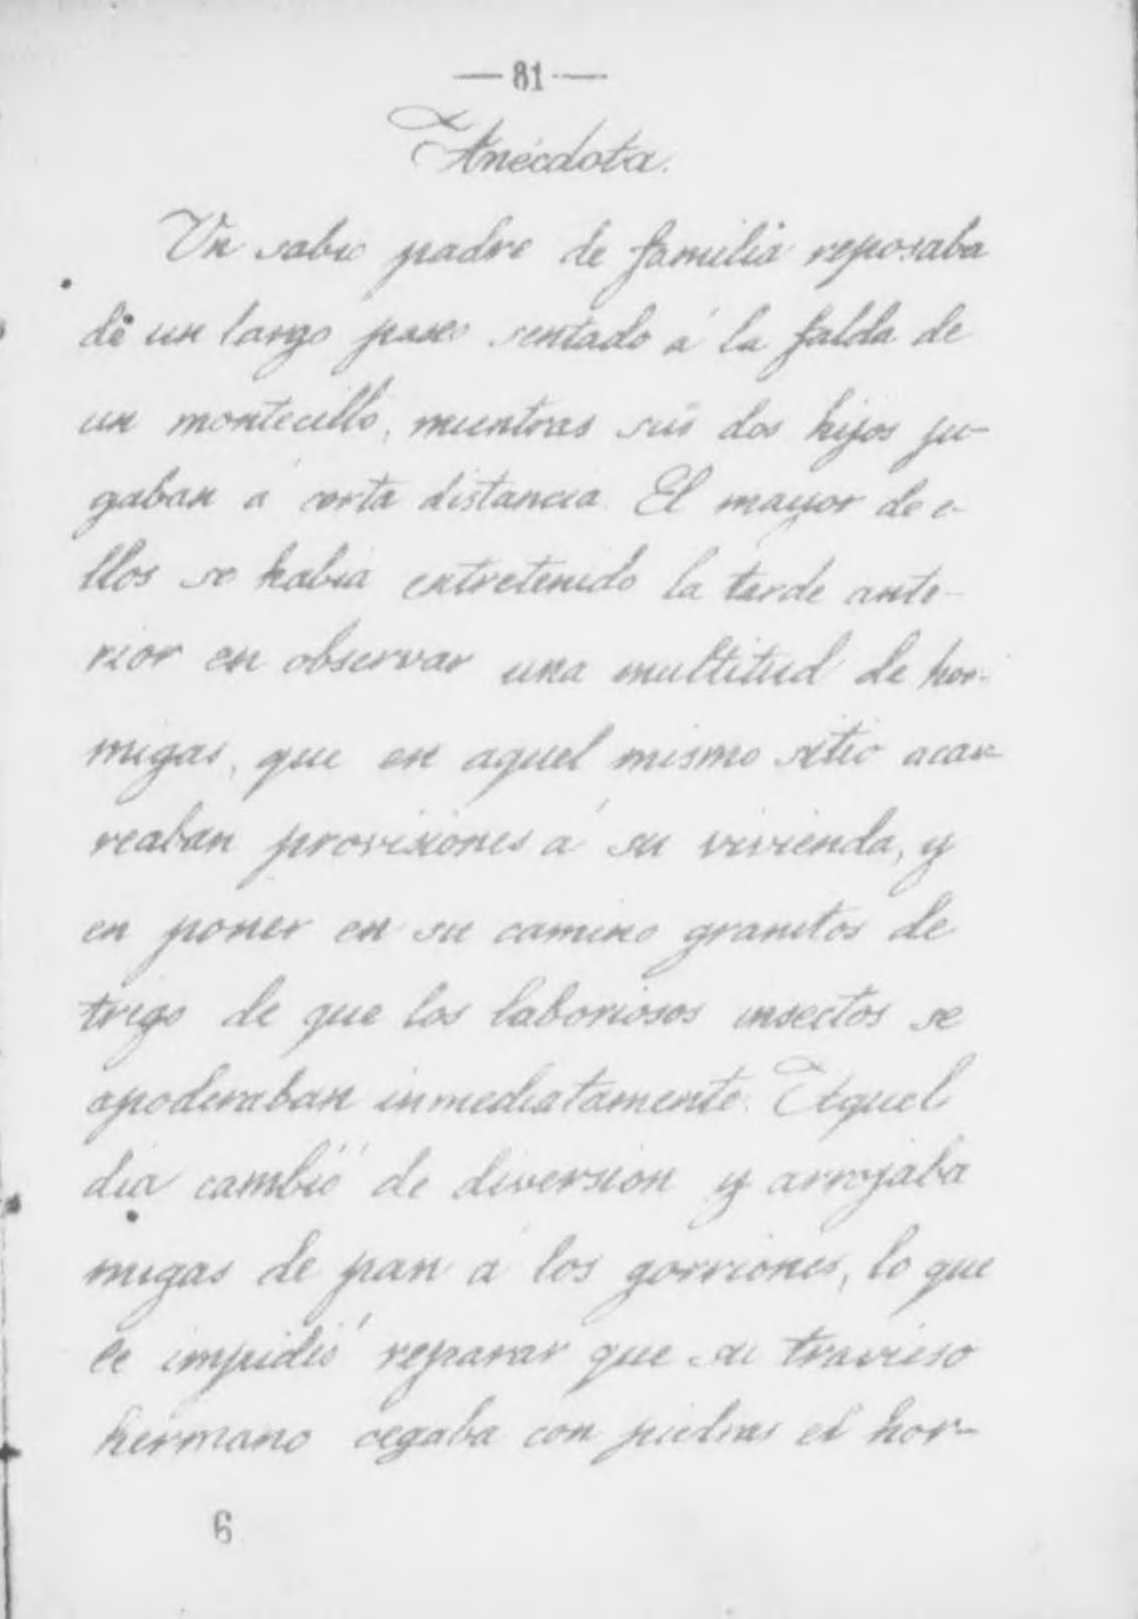 — 81 —
Anécdota.
Un sabio padre de familia reposaba
de un largo paseo sentado á la falda de
un montecillo, mientras sus dos hijos ju-
gaban á corta distancia. El mayor de e-
llos se habia entretenido la tarde ante-
rior en observar una multitud de hor-
migas, que en aquel mismo sitio acar-
reaban provisiones á su vivienda, y
en poner en su camino granitos de
trigo de que los laboriosos insectos se
apoderaban inmediatamente. Aquel
dia cambió de diversion y arrojaba
migas de pan á los gorriones, lo que
le impidió reparar que su travieso
hermano cegaba con piedras el hor-
6